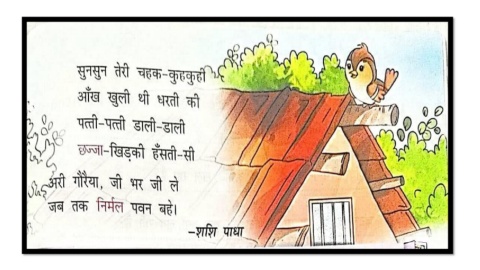 सुनसुन तेरी चहक-कुहकुही
आँख खुली थी धरती की
पत्ती-पत्ती डाली-डाली
छज्जा-खिड़की हँसती-सी
अरी गौरैया, जी भर जी ले
जब तक निर्मल पवन बहे।
-शशि पाधा